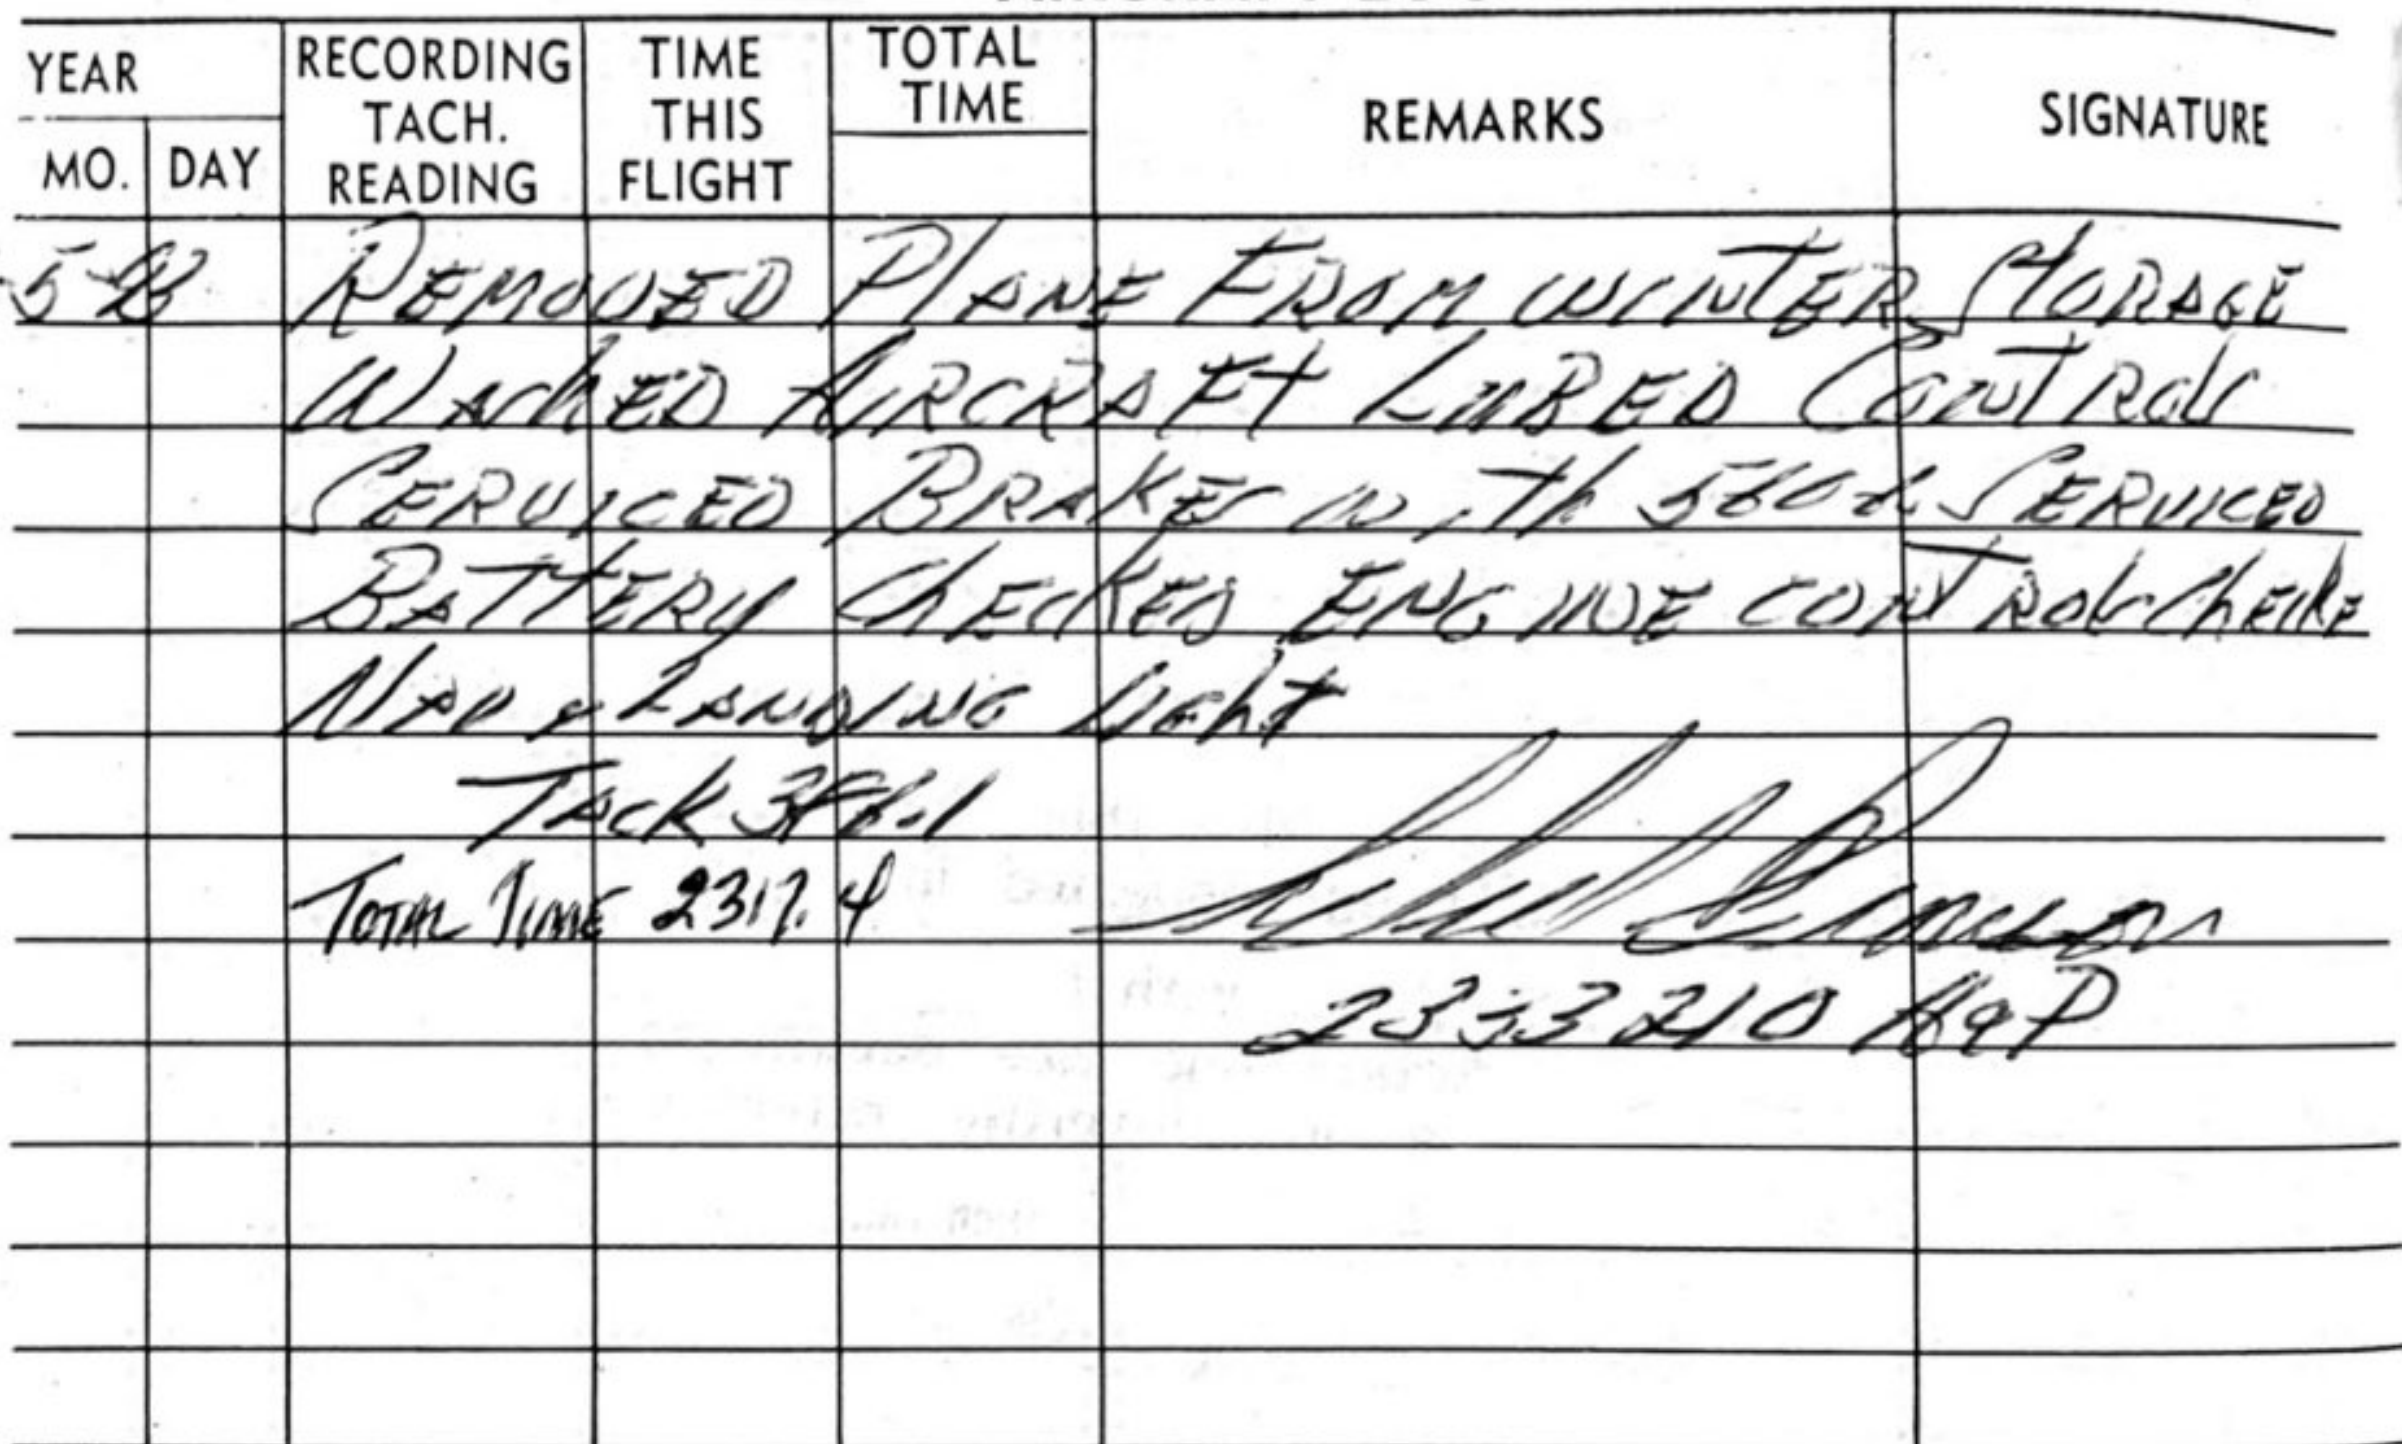 YEAR
MO.
DAY
RECORDING
TACH.
READING
TIME
THIS
FLIGHT
TOTAL
TIME
REMARKS
SIGNATURE
REMOVED PLANE FROM WINTER STORAGE
WASHED AIRCRAFT LUBED CONTROLS
SERVICED BRAKES with SERVICED
BATTERY CHECKED ENGINE CONTROLS Checke
NAV & LANDING Light
TACK
TOTAL TIME 2317.4
2333210 A&P